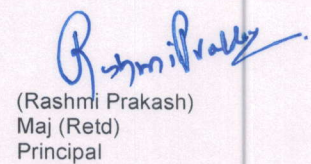 Rashmi Prakash
(Rashmi Prakash)
Maj (Retd)
Principal